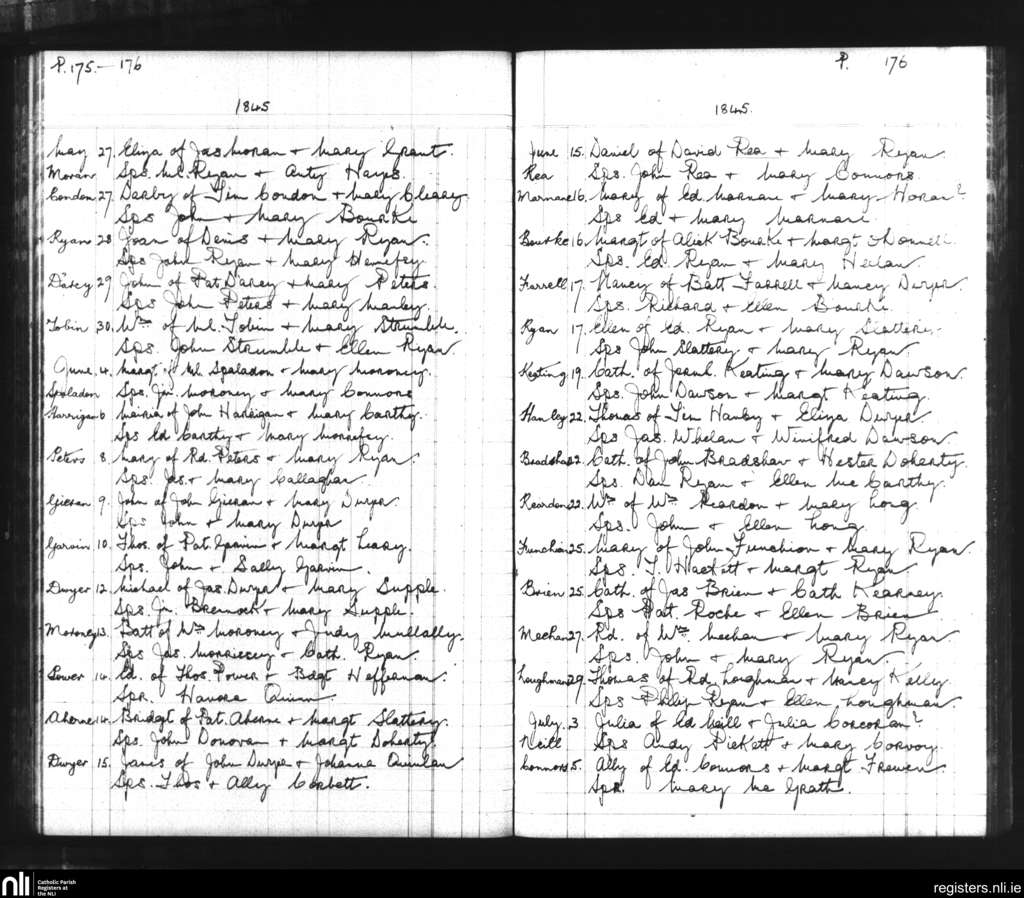 P. 175.- 176
1845
May 27. Eliza of Jas Moran + Mary Grant.
Moran Sps. Ml. Ryan + Anty Hayes.
Condon 27. Darby of Tim Condon + Mary Cleary
Sps John + Mary Bourke
Ryan 28. Joan of Denis + Mary Ryan.
Sps John Ryan + Mary Hennefey.
Darcy 29. John of Pat. Darcy + Mary Peters.
Sps John Peters + Mary Manley.
Tobin 30. Wm of Ml. Tobin + Mary Strumble.
Sps. John Strumble + Ellen Ryan.
June. 4. Margt. of Ml Spaladon + Mary Moroney.
Spaladon Sps. Jn. Moroney + Mary Connors
Harrigan 6 Maria of John Harrigan + Mary Carthy.
Sps Ed Carthy + Mary Morrifey.
Peters 8. Mary of Rd. Peters + Mary Ryan.
Sps. Jas. + Mary Callaghan.
Gieran 9. John of John Gieran + Mary Dwyer
Sps John + Mary Dwyer
Garvin 10. Thos. of Pat. Garvin + Margt Leary.
Sps. John + Sally Garvin.
Dwyer 12. Michael of Jas. Dwyer + Mary Supple.
Sps. Jn. Bremock + Mary Supple.
Moroney 13. Batt of Wm Moroney + Judy Mullally.
Sps Jas. Morrissey + Cath. Ryan.
Power 14. Ed. of Thos. Power + Bdgt Heffernan.
Spr. Hanora Quinn
Aherne 14. Bridgt of Pat. Aherne + Margt Slattery.
Sps. John Donovan + Margt Doherty.
Dwyer 15. James of John Dwyer + Johanna Quinlan
Sps. Thos + Ally Corbett.
P. 176
1845.
June 15. Daniel of David Rea + Mary Ryan.
Rea Sps. John Rea + Mary Connors.
Marnane 16. Mary of Ed. Marnane + Mary Horan?
Sps Ed + Mary Marnane.
Bourke 16. Margt of Alick Bourke + Margt
Sps. Ed. Ryan + Mary Heelan.
Farrell 17. Nancy of Batt Farrell + Nancy Dwyer.
Sps. Richard + Ellen Bourke.
Ryan 17. Ellen of Ed. Ryan + Mary Slattery.
Sps John Slattery + Mary Ryan.
Keating 19. Cath. of Keating + Mary Dawson.
Sps. John Dawson + Margt Keating.
Hanley 22. Thomas of Tim Hanly + Eliza Dwyer
Sps Jas. Whelan + Winifred Dawson.
Bradshaw 22. Cath. of John Bradshaw + Hester Doherty.
Sps. Dan Ryan + Ellen Mc Carthy.
Reardon 22. Wm of Wm Reardon + Mary Long.
Sps. John + Ellen Long.
Funchion 25. Mary of John Funchion + Mary Ryan.
Sps. T. Hackett + Margt Ryan
Brien 25. Cath. of Jas Brien + Cath Kearney.
Sps Pat. Roche + Ellen Brien
Meehan 27. Rd. of Wm Meehan + Mary Ryan
Sps. John + Mary Ryan.
Loughman 29. Thomas of Rd. Loughman + Nancy Kelly.
Sps Philip Ryan + Ellen Loughman.
July. 3 Julia of Ed Neill + Julia Corcoran?
Neill Sps Andy Pickett + Mary Corvoy.
Connors 5. Ally of Ed. Connors + Margt Frewen.
Spr. Mary Mc Grath.
nli Catholic Parish
Registers at
the NLI
registers.nli.ie